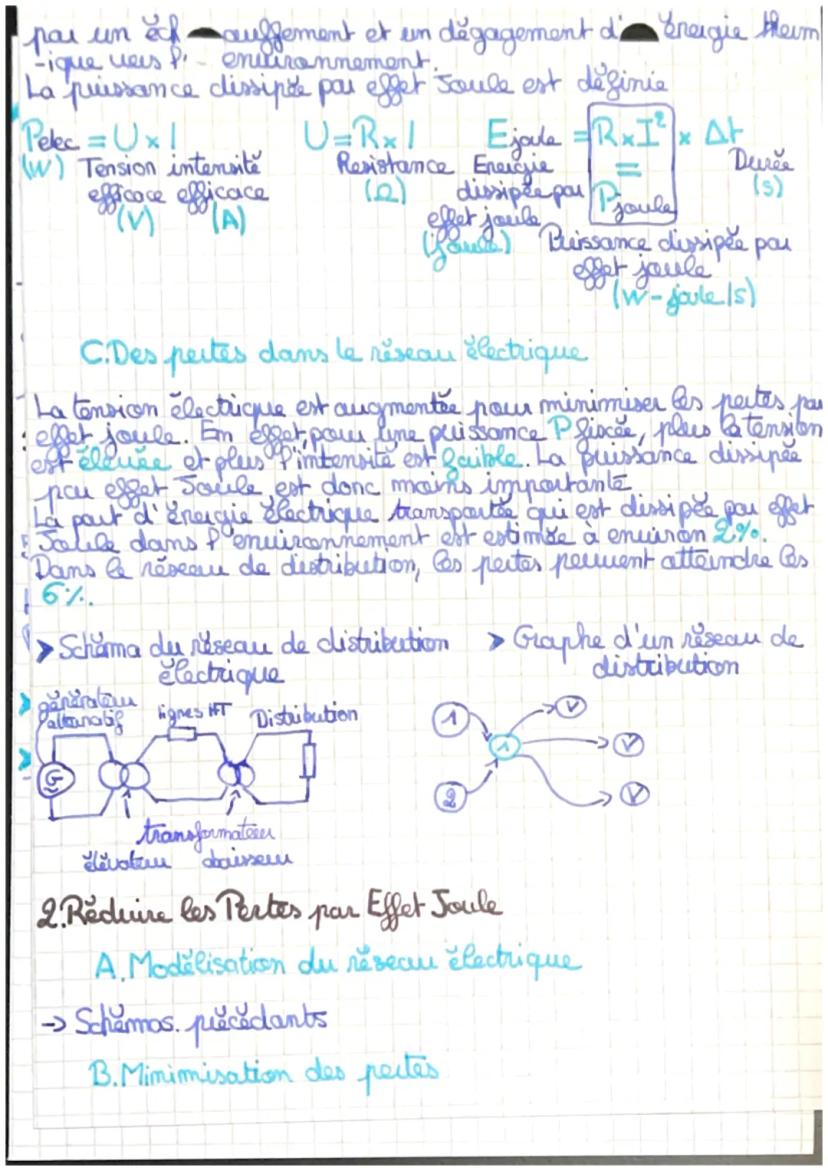 par un éch auffement et un dégagement d' énergie therm
-ique vers l'- environnement.
La puissance dissipée par effet Joule est définie
Pelec = U x I U = R x I Ejoule = R x I² x Δt
(W) Tension intensité Resistance Energie = Durée
efficace efficace (Ω) dissipée par Pjoule (s)
(V) (A) effet joule
(joule) Puissance dissipée par
effet joule
(W - joule/s)
C.Des pertes dans le réseau électrique
La tension électrique est augmentée pour minimiser les pertes par
effet joule. En effet, pour une puissance P fixée, plus la tension
est élevée et plus l'intensité est faible. La puissance dissipée
par effet Joule est donc moins importante
La part d'énergie électrique transportée qui est dissipée par effet
Joule dans l'environnement est estimée à environ 2%.
Dans le réseau de distribution, les pertes peuvent atteindre les
6%.
> Schéma du réseau de distribution > Graphe d'un réseau de
électrique distribution
générateur
alternatif lignes HT Distribution
G
1 1 V
V
2 V
transformateur
élévateur abaisseur
2.Réduire les Pertes par Effet Joule
A.Modélisation du réseau électrique
-> Schémas. précédants
B.Minimisation des pertes